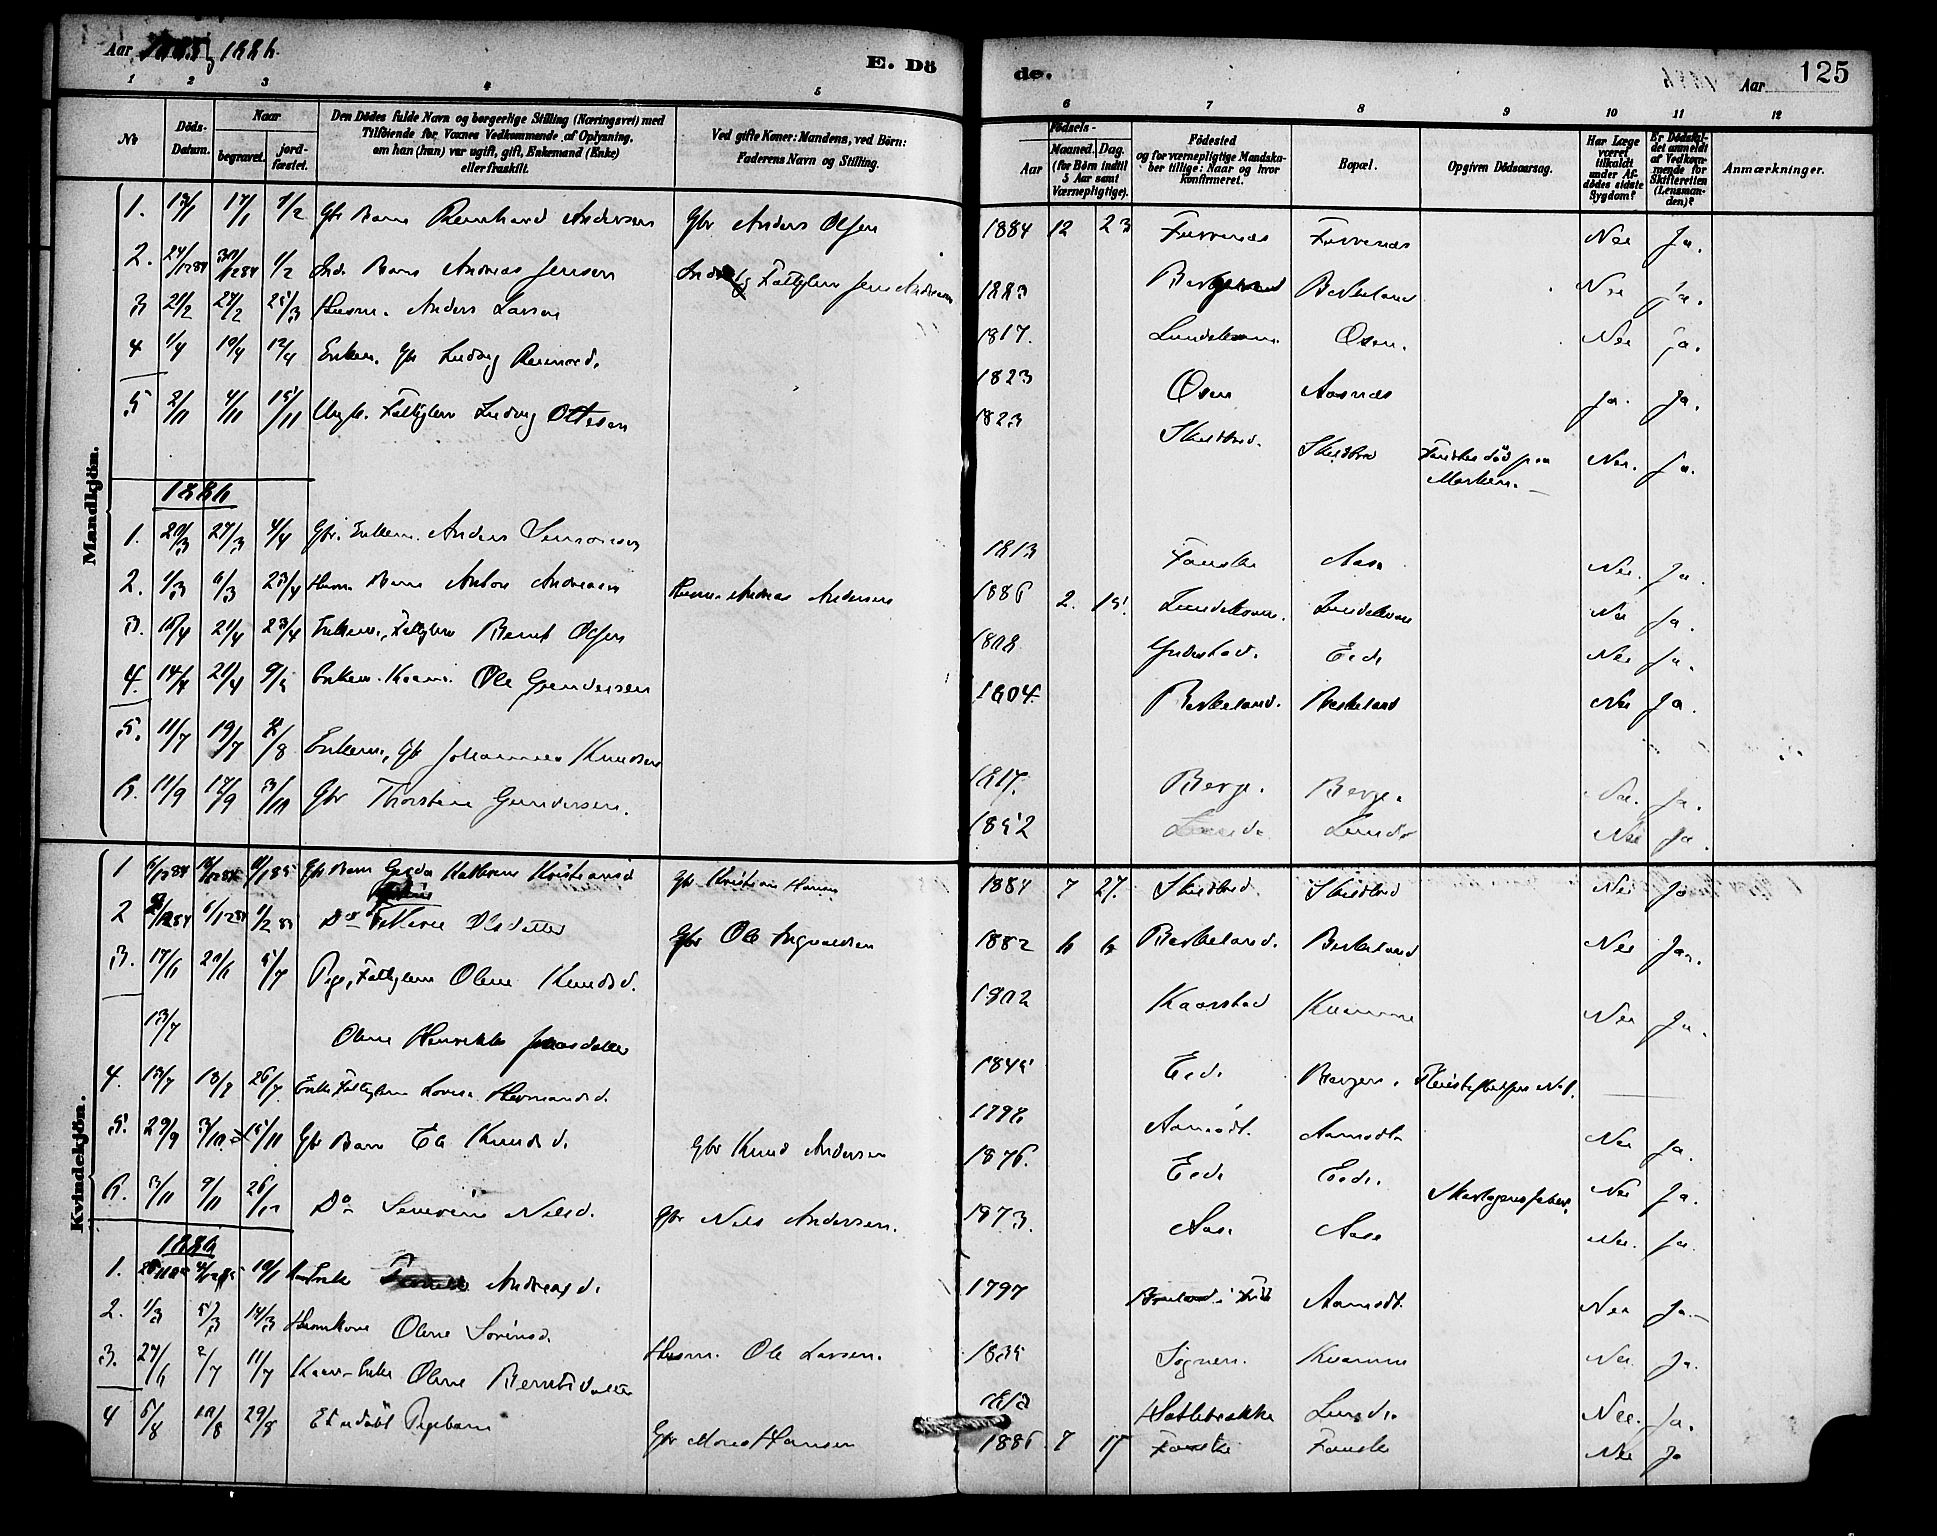 Aar 1885 og 1886
E. Dö
de.
Aar 125
1 2 3 4 5 6 7 8 9 10 11 12
No
Döds-Datum.
Naar
begravet.
jord-fæstet.
Den Dödes fulde Navn og borgerlige Stilling (Næringsvei) med
Tilföiende for Voxnes Vedkommende af Oplysning,
om han (hun) var ugift, gift, Enkemand (Enke)
eller fraskilt.
Ved gifte Koner: Mandens, ved Börn:
Faderens Navn og Stilling.
Födsels-
Aar
Maaned. Dag.
(for Börn indtil
5 Aar samt
Værnepligtige).
Födested
og for værnepligtige Mandska-
ber tillige: Naar og hvor
konfirmeret.
Bopæl.
Opgiven Dödsaarsag.
Har Læge
været
tilkaldt
under Af-
dödes sidste
Sygdom?
Er Dödsfal-
det anmeldt
af Vedkom-
mende for
Skifteretten
(Lensman-
den)?
Anmærkninger.
Mandkjön.
1. 13/1 17/1 1/2 Gbr Barn Reinhard Andersen Gbr Anders Olsen 1884 12 23 Furenæs Furenæs Nei Ja.
2. 24/12 84 30/12 84 1/2 Inds. Barn Andreas Jensen Fattiglem Jens Andreasen 1883 Birkeland Nei ja.
3 21/2 27/2 25/3 Husm. Anders Larsen 1817. Osen. Nei ja.
4 1/4 10/4 12/4 Enkem. Gbr Ludvig Rasmusd. 1823 Osen Aasnæs ja. Ja.
5 2/11 4/11 15/11 Ungk. Fattiglem Ludvig Ottesen 1823 Skeidbrd. Funden död paa
Marken. Nei. Ja.
1886
1. 20/3 27/3 4/4 Gbr. Enkem. Anders Simonsen 1813 Fauske Aase Nei. Ja.
2. 1/3 6/3 23/4 Husm. Barn Anton Andreasen Husm. Andreas Andersen 1886 2. 15. Nei Ja.
3. 15/4 21/4 23/4 Enkem., Fattiglem Bernt Olsen 1808 Eede Nei Ja.
4. 14/4 21/4 9/5 Enkem. Kaarm. Ole Gundersen 1804. Birkeland. Birkeland Nei Ja.
5. 11/7 19/7 /8 Enkem., Gbr Johannes Knudsen 1817. Berge. Berge. Nei. Ja.
6. 11/9 17/9 3/10 Gbr Thorstein Gundersen. 1852 Lunde. Lunde Nei Ja.
Kvindekjön.
1 6/12 84 1/1 85 Gbr Barn Gerda Kathrine Kristiansd Gbr Kristian Hansen 1884 7 27. Nei Ja
2 6/12 84 1/2 85 Do Olsdatter Gbr Ole Ingvaldsen 1882 6 6 Birkeland. Birkeland Nei Ja.
3. 17/6 21/6 5/7 Pige, Fattiglem Olene Knudsd. 1802 Kaarstad Kvamme Nei Ja.
13/7 Oline Henrikke Jonasdatter 1845 Eede Bergen.
4. 13/7 18/7 26/7 Enke Fattiglem Lovise Hermandsd. 1798 Aamodt. Aamodt Nei Ja.
5. 29/9 3/10. 15/11 Gbr Barn Eli Knudsd. Gbr Knud Andersen 1876. Eede. Eede. Skarlagensfeber. Nei Ja.
6. 3/11 9/11 26/12 Do Severine Nilsd. Gbr Nils Andersen. 1873. Aase Aase Nei. Ja.
1886
1. 10/1 Enke Andreasd. 1797 Aamodt. Nei Ja.
2. 1/3 5/3 14/3 Huskone Olene Sörensd. Husm. Ole Larsen. 1835 Sognen. Kvamme Nei Ja.
3. 27/6 2/7 11/7 Kaar-Enke Oline Berntsdatter 1813 Hatlebrække Lunde. Nei. Ja.
4 5/8 10/8 29/8 Et udöbt Pigebarn Gbr Mons Hansen 1886 7 17 Fauske Fauske Nei Ja